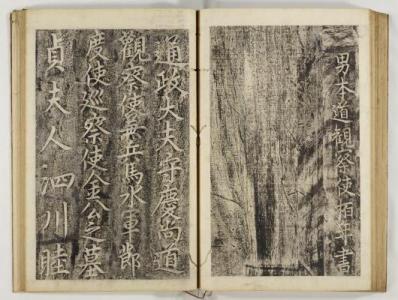 男本道觀察使年書
通政大夫守慶尚道
觀察使兼兵馬水軍節
度使巡察使金公之墓
貞夫人泗川睦